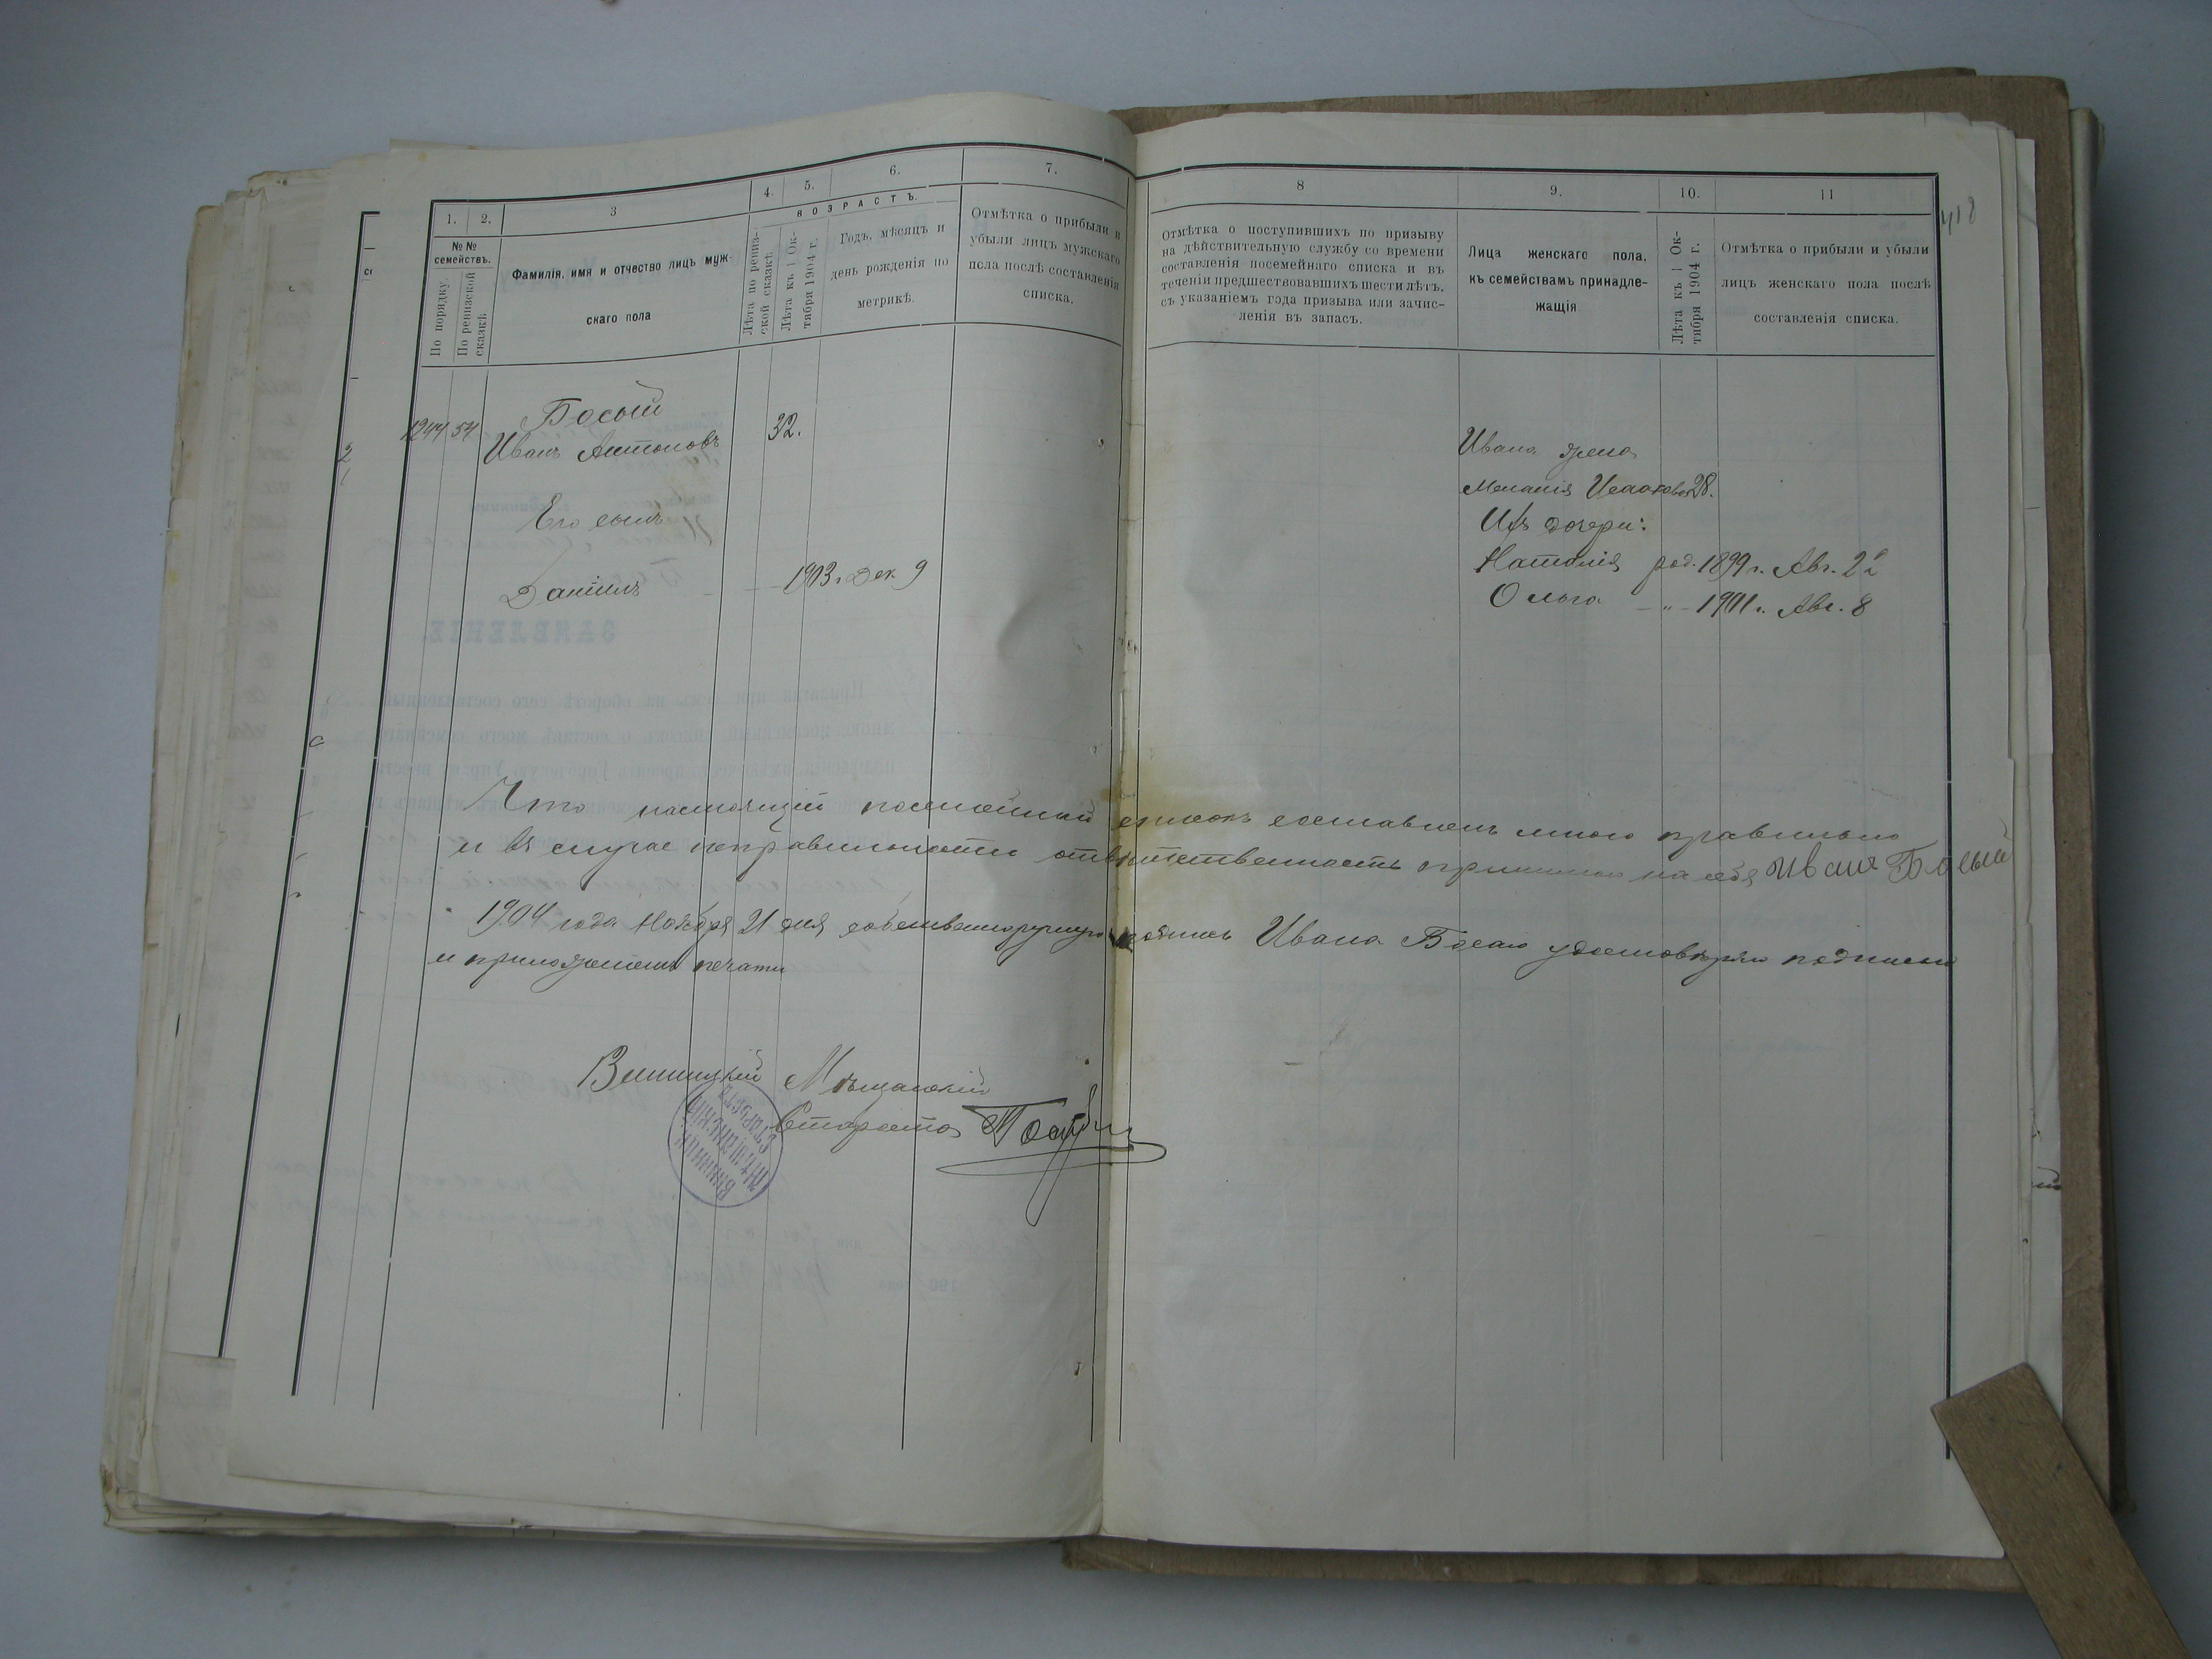 418
1.
2.
3
4.
5.
6.
7.
№№ семействъ.
По порядку.
По ревизской сказкѣ
Фамилія, имя и отчество лицъ муж-
скаго пола
ВОЗРАСТЪ.
Лѣта по ревиз-
ской сказкѣ
Лѣта къ 1 Ок-
тября 1904 г.
Годъ, мѣсяцъ и
день рожденія по
метрикѣ.
Отмѣтка о прибыли и
убыли лицъ мужскаго
пола послѣ составленія
списка.
8
9.
10.
11
Отмѣтка о поступившихъ по призыву
на дѣйствительную службу со времени
составленія посемейнаго списка и въ
теченіи предшествовавшихъ шести лѣтъ,
съ указаніемъ года призыва или зачис-
ленія въ запасъ.
Лица женскаго пола,
къ семействамъ принадле-
жащія
Лѣта къ 1 Ок-
тября 1904 г.
Отмѣтка о прибыли и убыли
лицъ женскаго пола послѣ
составленія списка.
Босый
1244 54 Иванъ Антоновъ 32.
Его сынъ
Даніилъ 1903 г. Дек. 9
Ивана жена
Меланія Исаакова 28.
Ихъ дочери:
Наталія род. 1899 г. Авг. 22
Ольга — " — 1901 г. Авг. 8
Что настоящій посемейный списокъ составленъ мною правильно
и въ случае неправильности отвѣтственность принимаю на себя Иванъ Босый
1904 года Ноября 21 дня собственноручную подпись Ивана Босаго удостовѣряю подписью
и приложеніемъ печати
Винницкій Мѣщанскій
Староста
ВИННИЦКІЙ
МѢЩАНСКІЙ
СТАРОСТА
ЗАЯВЛЕНІЕ.